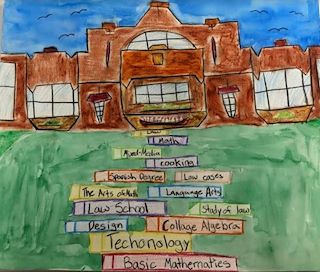 Law
Math
Mixed-Media
cooking
Spanish Degree
Law cases
The Arts of Math
Language Arts
Law School
Study of law
Design
Collage Algebra
Techonology
Basic Mathematics